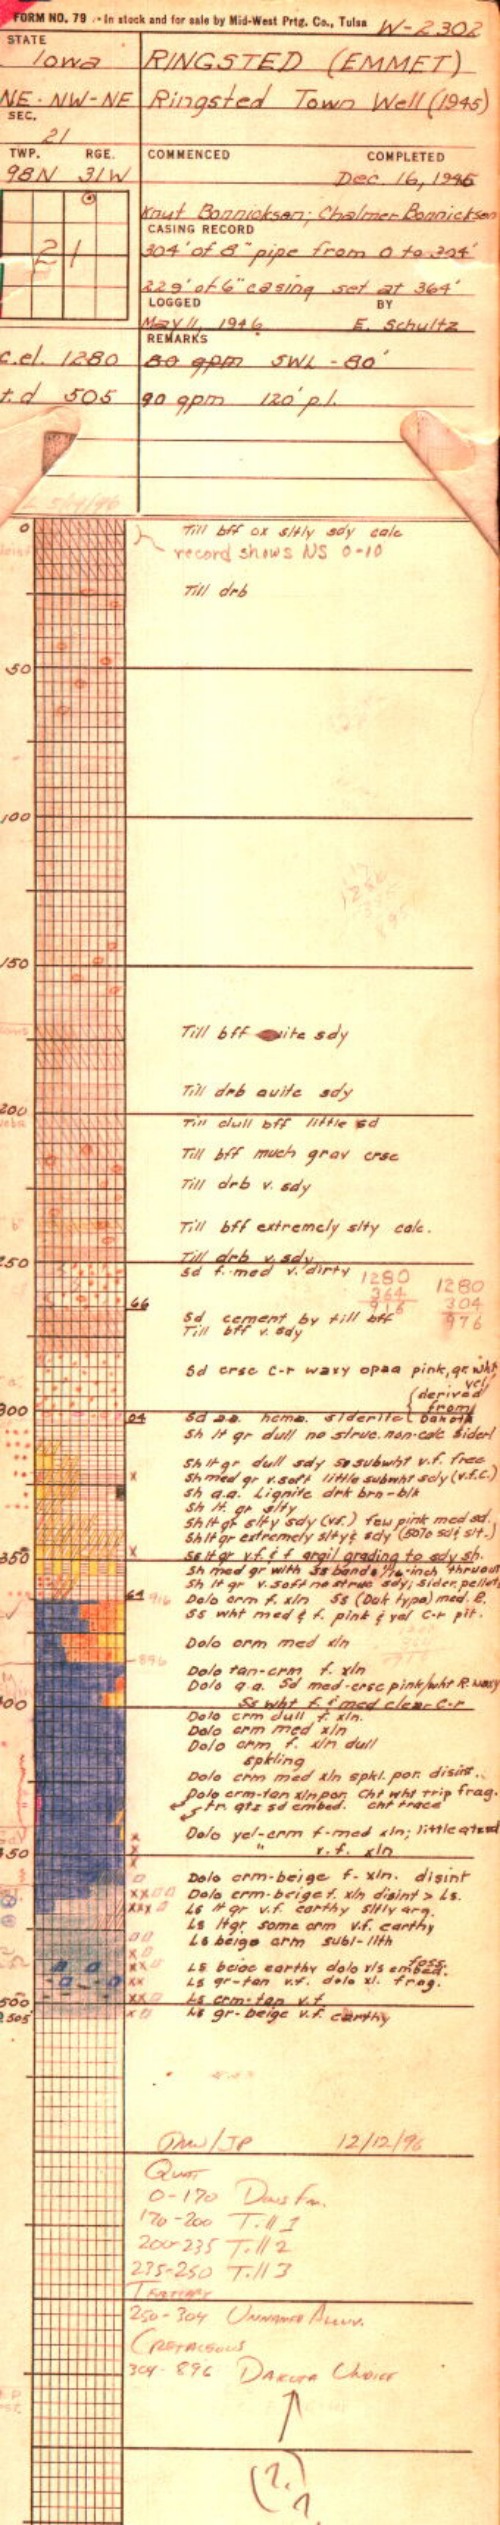 FORM NO. 79 - In stock and for sale by Mid-West Prtg. Co., Tulsa W-2302
STATE
Iowa RINGSTED (EMMET)
NE-NW-NE Ringsted Town Well (1945)
SEC.
21
TWP. RGE. COMMENCED COMPLETED
98N 31W Dec. 16, 1945
Knut Bonnicksen; Chalmer Bonnicksen
CASING RECORD
304' of 8" pipe from 0 to 304'
21
229' of 6" casing set at 364'
LOGGED BY
May 11, 1946 E. Schultz
REMARKS
c.el. 1280 80 gpm SWL - 80'
t.d 505 90 gpm 120' p.l.
0 Till bff ox sltly sdy calc
record shows NS 0-10
Till drb
50
100
150
Till bff quite sdy
Till drb quite sdy
200
Till dull bff little sd
Till bff much grav crse
Till drb v. sdy
Till bff extremely slty calc.
250 Till drb v. sdy
Sd f-med v. dirty 1280 1280
364 304
916 976
66
Sd cement by till bff
Till bff v. sdy
Sd crse c-r waxy opaq pink, gr, wht
yel,
(derived
from
300 04 Sd a.a. hema. siderite Dakota
Sh lt gr dull no struc. non-calc siderl
Sh lt gr dull sdy ss subwht v.f. free
Sh med gr v.soft little subwht sdy (v.f.c.)
Sh a.a. Lignite drk brn-blk
Sh lt. gr slty
Sh lt gr slty sdy (vf.) few pink med sd.
Sh lt gr extremely slty & sdy (50% sd & slt.)
350 Ss lt gr v.f. & f argil grading to sdy sh.
Sh med gr with ss bands 1/16-inch thruout
Sh lt gr v.soft no struc sdy; sider. pellets
64 916 Dolo crm f. xln Ss (Dak type) med. E.
Ss wht med & f. pink & yel c-r pit.
Dolo crm med xln
896
Dolo tan-crm f. xln
Dolo a.a. Sd med-crse pink/wht R. waxy
400 Ss wht f. & med clear c-r
Dolo crm dull f. xln.
Dolo crm med xln
Dolo crm f. xln dull
spkling
Dolo crm med xln spkl. por. disint.
Dolo crm-tan xln por. Cht wht trip frag.
tr. qtz sd embed. cht trace
Dolo yel-crm f-med xln; little qtz sd
450 " v.f. xln
Dolo crm-beige f. xln. disint
Dolo crm-beige f. xln disint > Ls.
Ls lt gr v.f. earthy sltly arg.
Ls lt gr. some crm v.f. earthy
Ls beige crm subl-lith
Ls beige earthy dolo xls embed. foss.
Ls gr-tan v.f. dolo xl. frag.
500 Ls crm-tan v.f
505 Ls gr-beige v.f. earthy
12/12/96
Quat
0-170 Dows Fm.
170-200 Till 1
200-235 Till 2
235-250 Till 3
Tertiary
250-304 Unnamed Alluv.
Cretaceous
304-896 Dakota
(?)